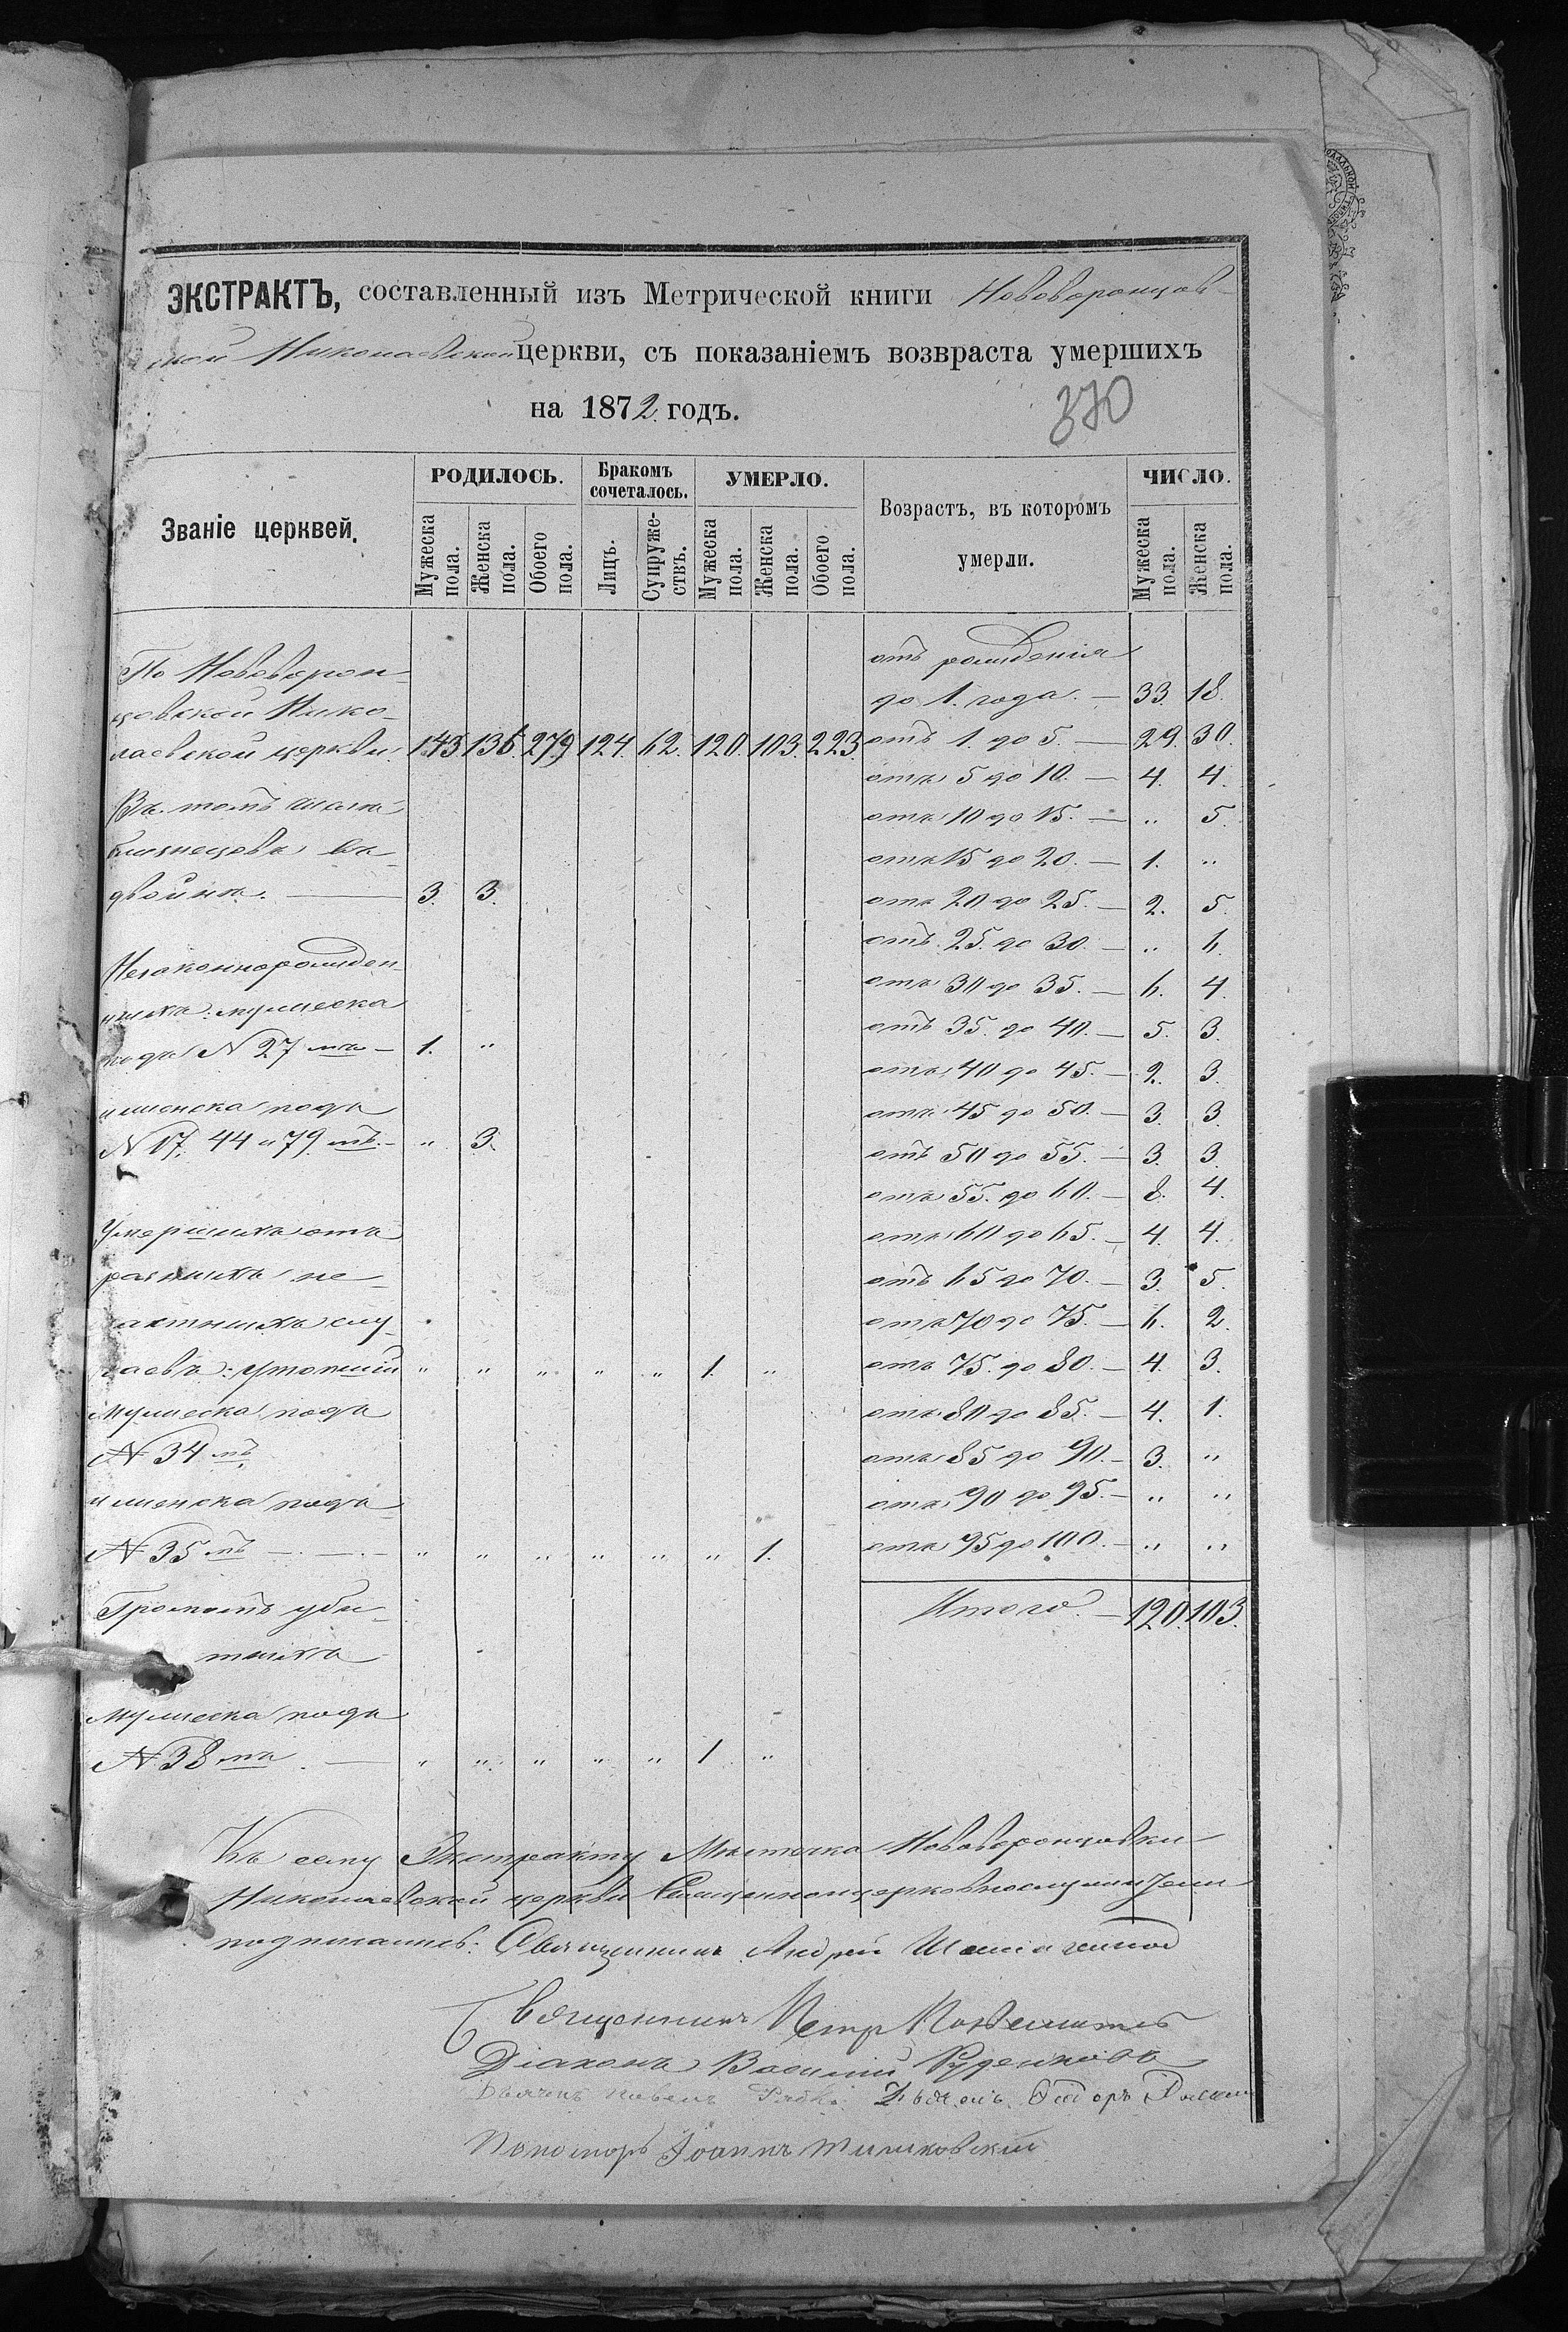 ЭКСТРАКТЪ, составленный изъ Метрической книги Нововоронцов-
ской Николаевской церкви, съ показаніемъ возвраста умершихъ
на 1872 годъ.
370
Званіе церквей.
РОДИЛОСЬ.
Бракомъ сочеталось.
УМЕРЛО.
Возрастъ, въ которомъ умерли.
ЧИСЛО.
Мужеска пола.
Женска пола.
Обоего пола.
Лицъ.
Супружествъ.
Мужеска пола.
Женска пола.
Обоего пола.
Мужеска пола.
Женска пола.
По Нововорон-
цовской Нико-
лаевской церкви. 143. 136. 279. 124. 62. 120. 103. 223.
Въ томъ числѣ
близнецовъ въ
двойнѣ. — 3. 3.
Незаконнорожден-
ныхъ: мужеска
подъ N 27 мъ — 1. "
и женска подъ
N 17, 44 и 79 мъ. — " 3.
Умершихъ отъ
разныхъ не-
счастныхъ слу-
чаевъ: утопшій " " " " " 1. "
мужеска подъ
N 34 мъ,
и женска подъ
N 35 мъ — " " " " " " 1.
Громомъ уби-
тыхъ
мужеска подъ
N 38 мъ. — " " " " " 1 "
отъ рожденія
до 1. года. — 33. 18.
отъ 1. до 5. — 29. 30.
отъ 5 до 10. — 4. 4.
отъ 10 до 15. — " 5.
отъ 15 до 20. — 1. "
отъ 20 до 25. — 2. 5.
отъ 25. до 30. — " 6.
отъ 30 до 35. — 6. 4.
отъ 35. до 40. — 5. 3.
отъ 40 до 45. — 2. 3.
отъ 45 до 50. — 3. 3.
отъ 50 до 55. — 3. 3.
отъ 55. до 60. — 8. 4.
отъ 60 до 65. — 4. 4.
отъ 65 до 70. — 3. 5.
отъ 70 до 75. — 6. 2.
отъ 75. до 80. — 4. 3.
отъ 80 до 85. — 4. 1.
отъ 85 до 90. — 3. "
отъ 90 до 95. — " "
отъ 95 до 100. — " "
Итого. — 120. 103.
Къ сему Экстракту Мѣстечка Нововоронцовки
Николаевской церкви Священноцерковнослужители
подписались: Священникъ Андрей
Священникъ Петр
Діаконъ Василій Руденковъ
Дьячокъ Павелъ
Пономорь Іоаннъ